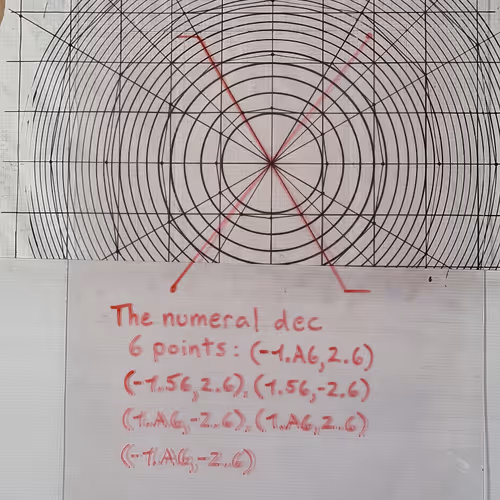 The numeral dec
6 points: (-1.A6,2.6)
(-1.56,2.6),(1.56,-2.6)
(1.A6,-2.6),(1.A6,2.6)
(-1.A6,-2.6)